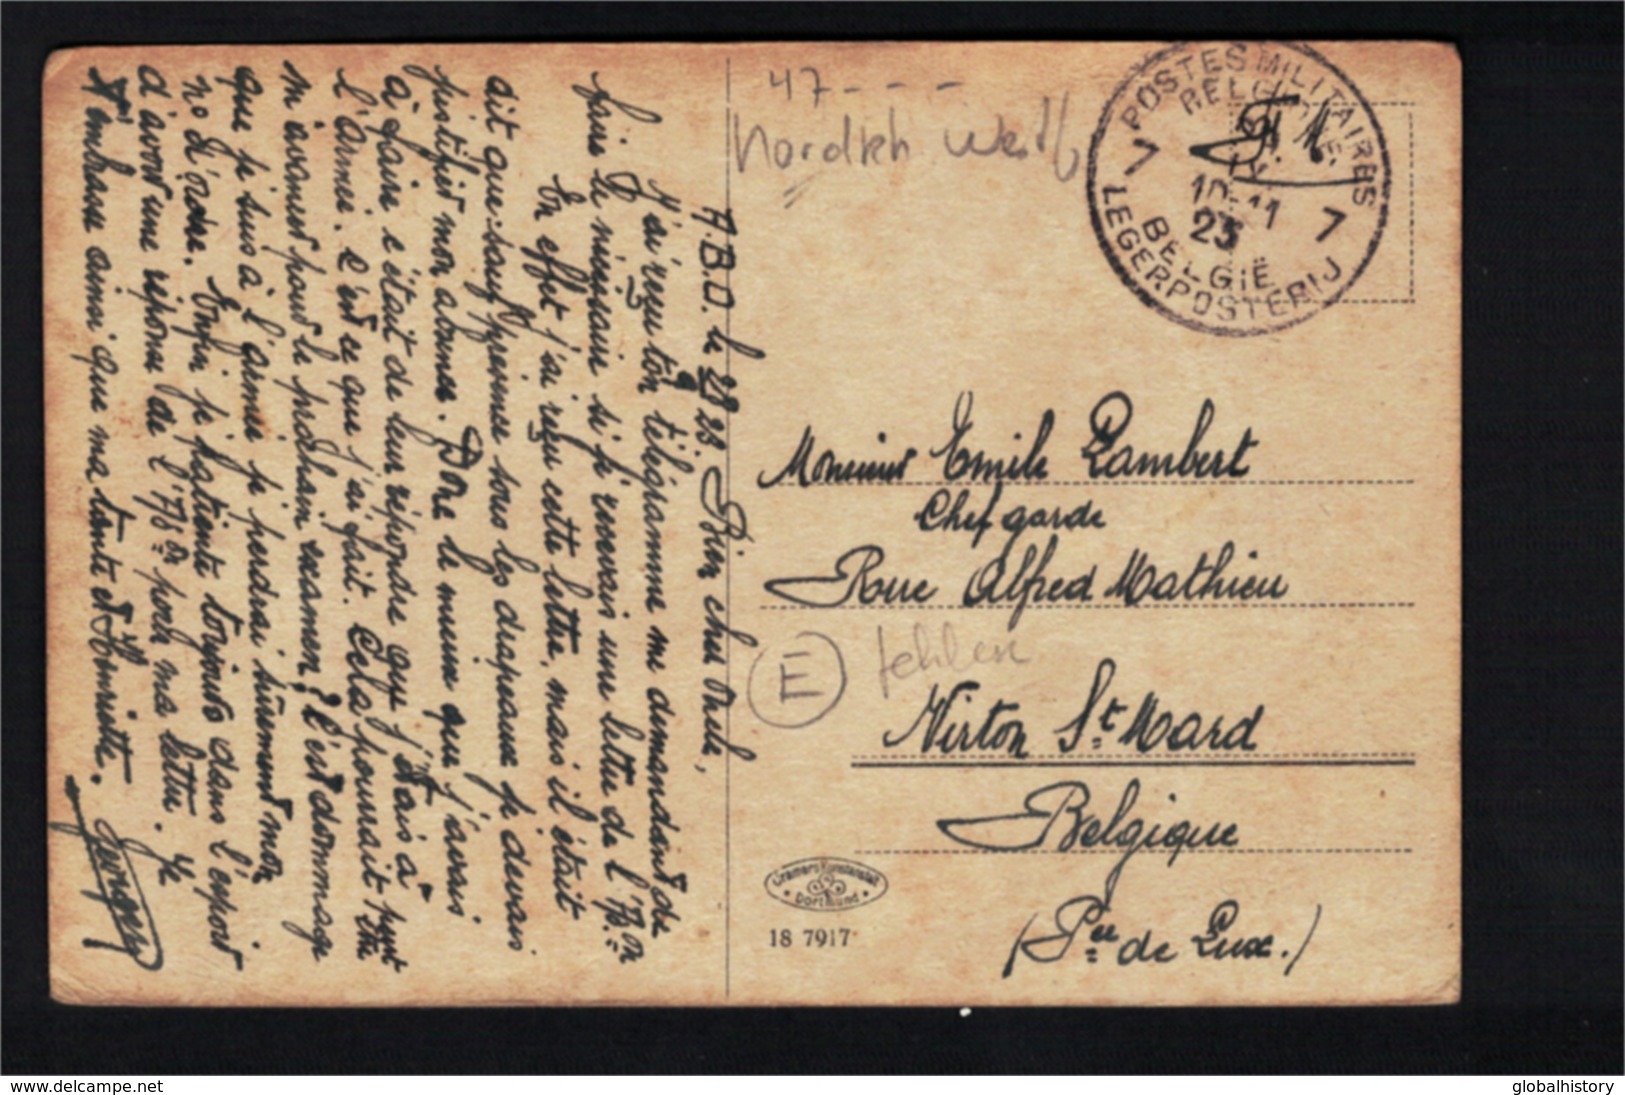 A.B.O. le 23. Bien cher Oncle,
J'ai reçu ton télégramme me demandant de
faire le nécessaire si je recevais une lettre de l'
En effet j'ai reçu cette lettre, mais il était
dit que: sauf présence sous les drapeaux je devais
justifier mon absence. Donc la même que j'aurais
à faire c'était de leur répondre que j'étais à
l'armée. C'est ce que j'ai fait. Cela pourrait être
m'avancer pour le prochain examen? C'est dommage
que je suis à l'armée je perdrai sûrement mon
no d'ordre. Enfin je patiente toujours dans l'espoir
d'avoir une réponse de l' ma lettre. Je
t'embrasse ainsi que ma tante et Henriette.
Georges
47 - - -
Nordrh Westf
POSTES MILITAIRES
BELGIQUE
S.M.
7 7
10 11
23
BELGIË
LEGERPOSTERIJ
Monsieur Emile Lambert
Chef garde
Rue Alfred Mathieu
E
Virton St Mard
Belgique
(Pce de Lux.)
Cramers Kunstanstalt
Dortmund
18 7917
www.delcampe.net
globalhistory